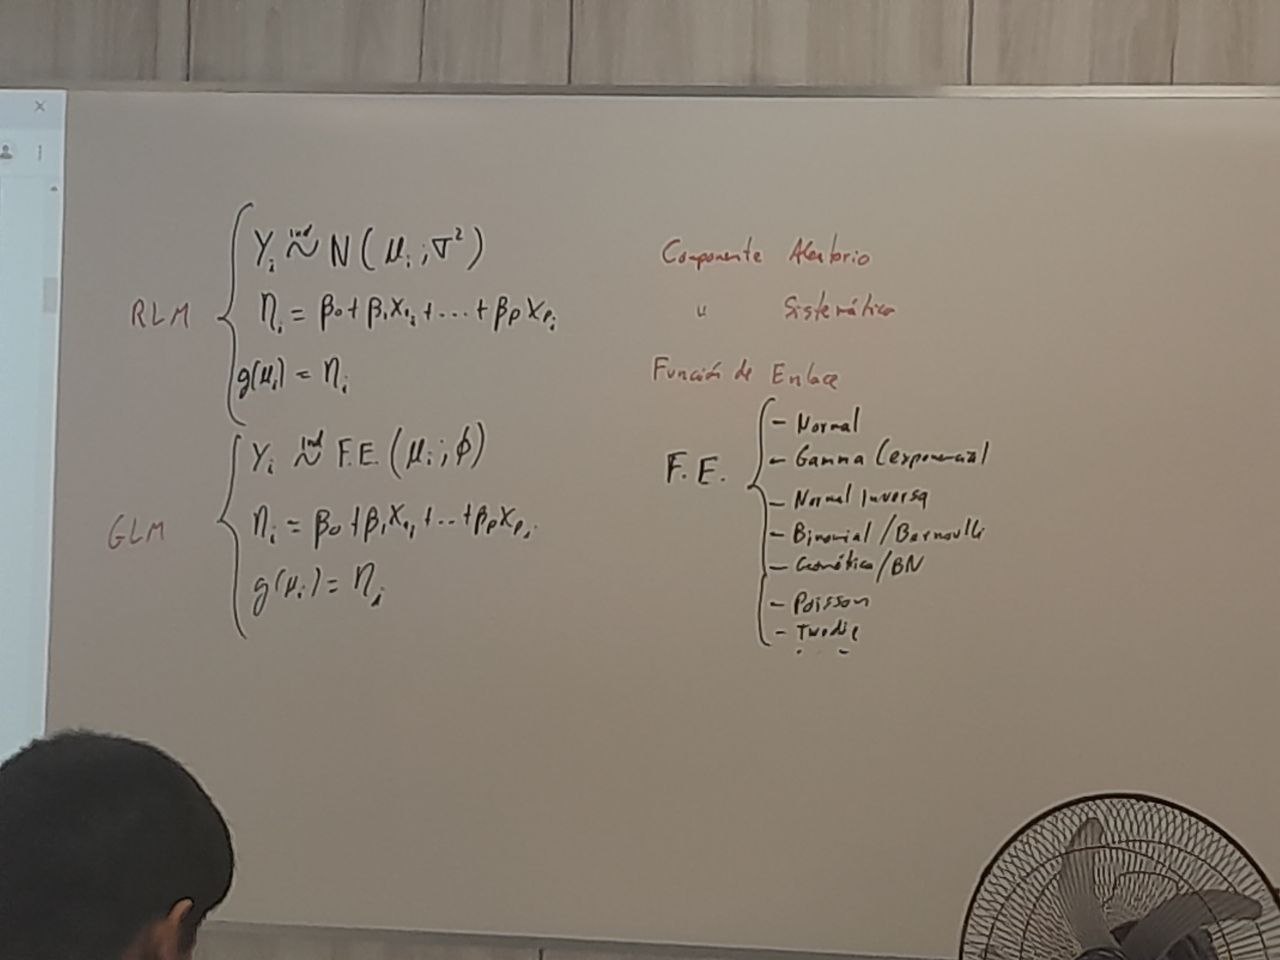 RLM
Y_i ~ind N(μ_i ; σ²)
η_i = β₀ + β₁X₁ᵢ + ... + βₚXₚᵢ
g(μ_i) = η_i
GLM
Y_i ~ind F.E. (μ_i ; φ)
η_i = β₀ + β₁X₁ᵢ + ... + βₚXₚᵢ
g(μ_i) = η_i
Componente Aleatorio
" Sistemático
Función de Enlace
F.E.
- Normal
- Gamma (exponencial
- Normal Inversa
- Binomial / Bernoulli
- Geométrica / BN
- Poisson
- Twedie